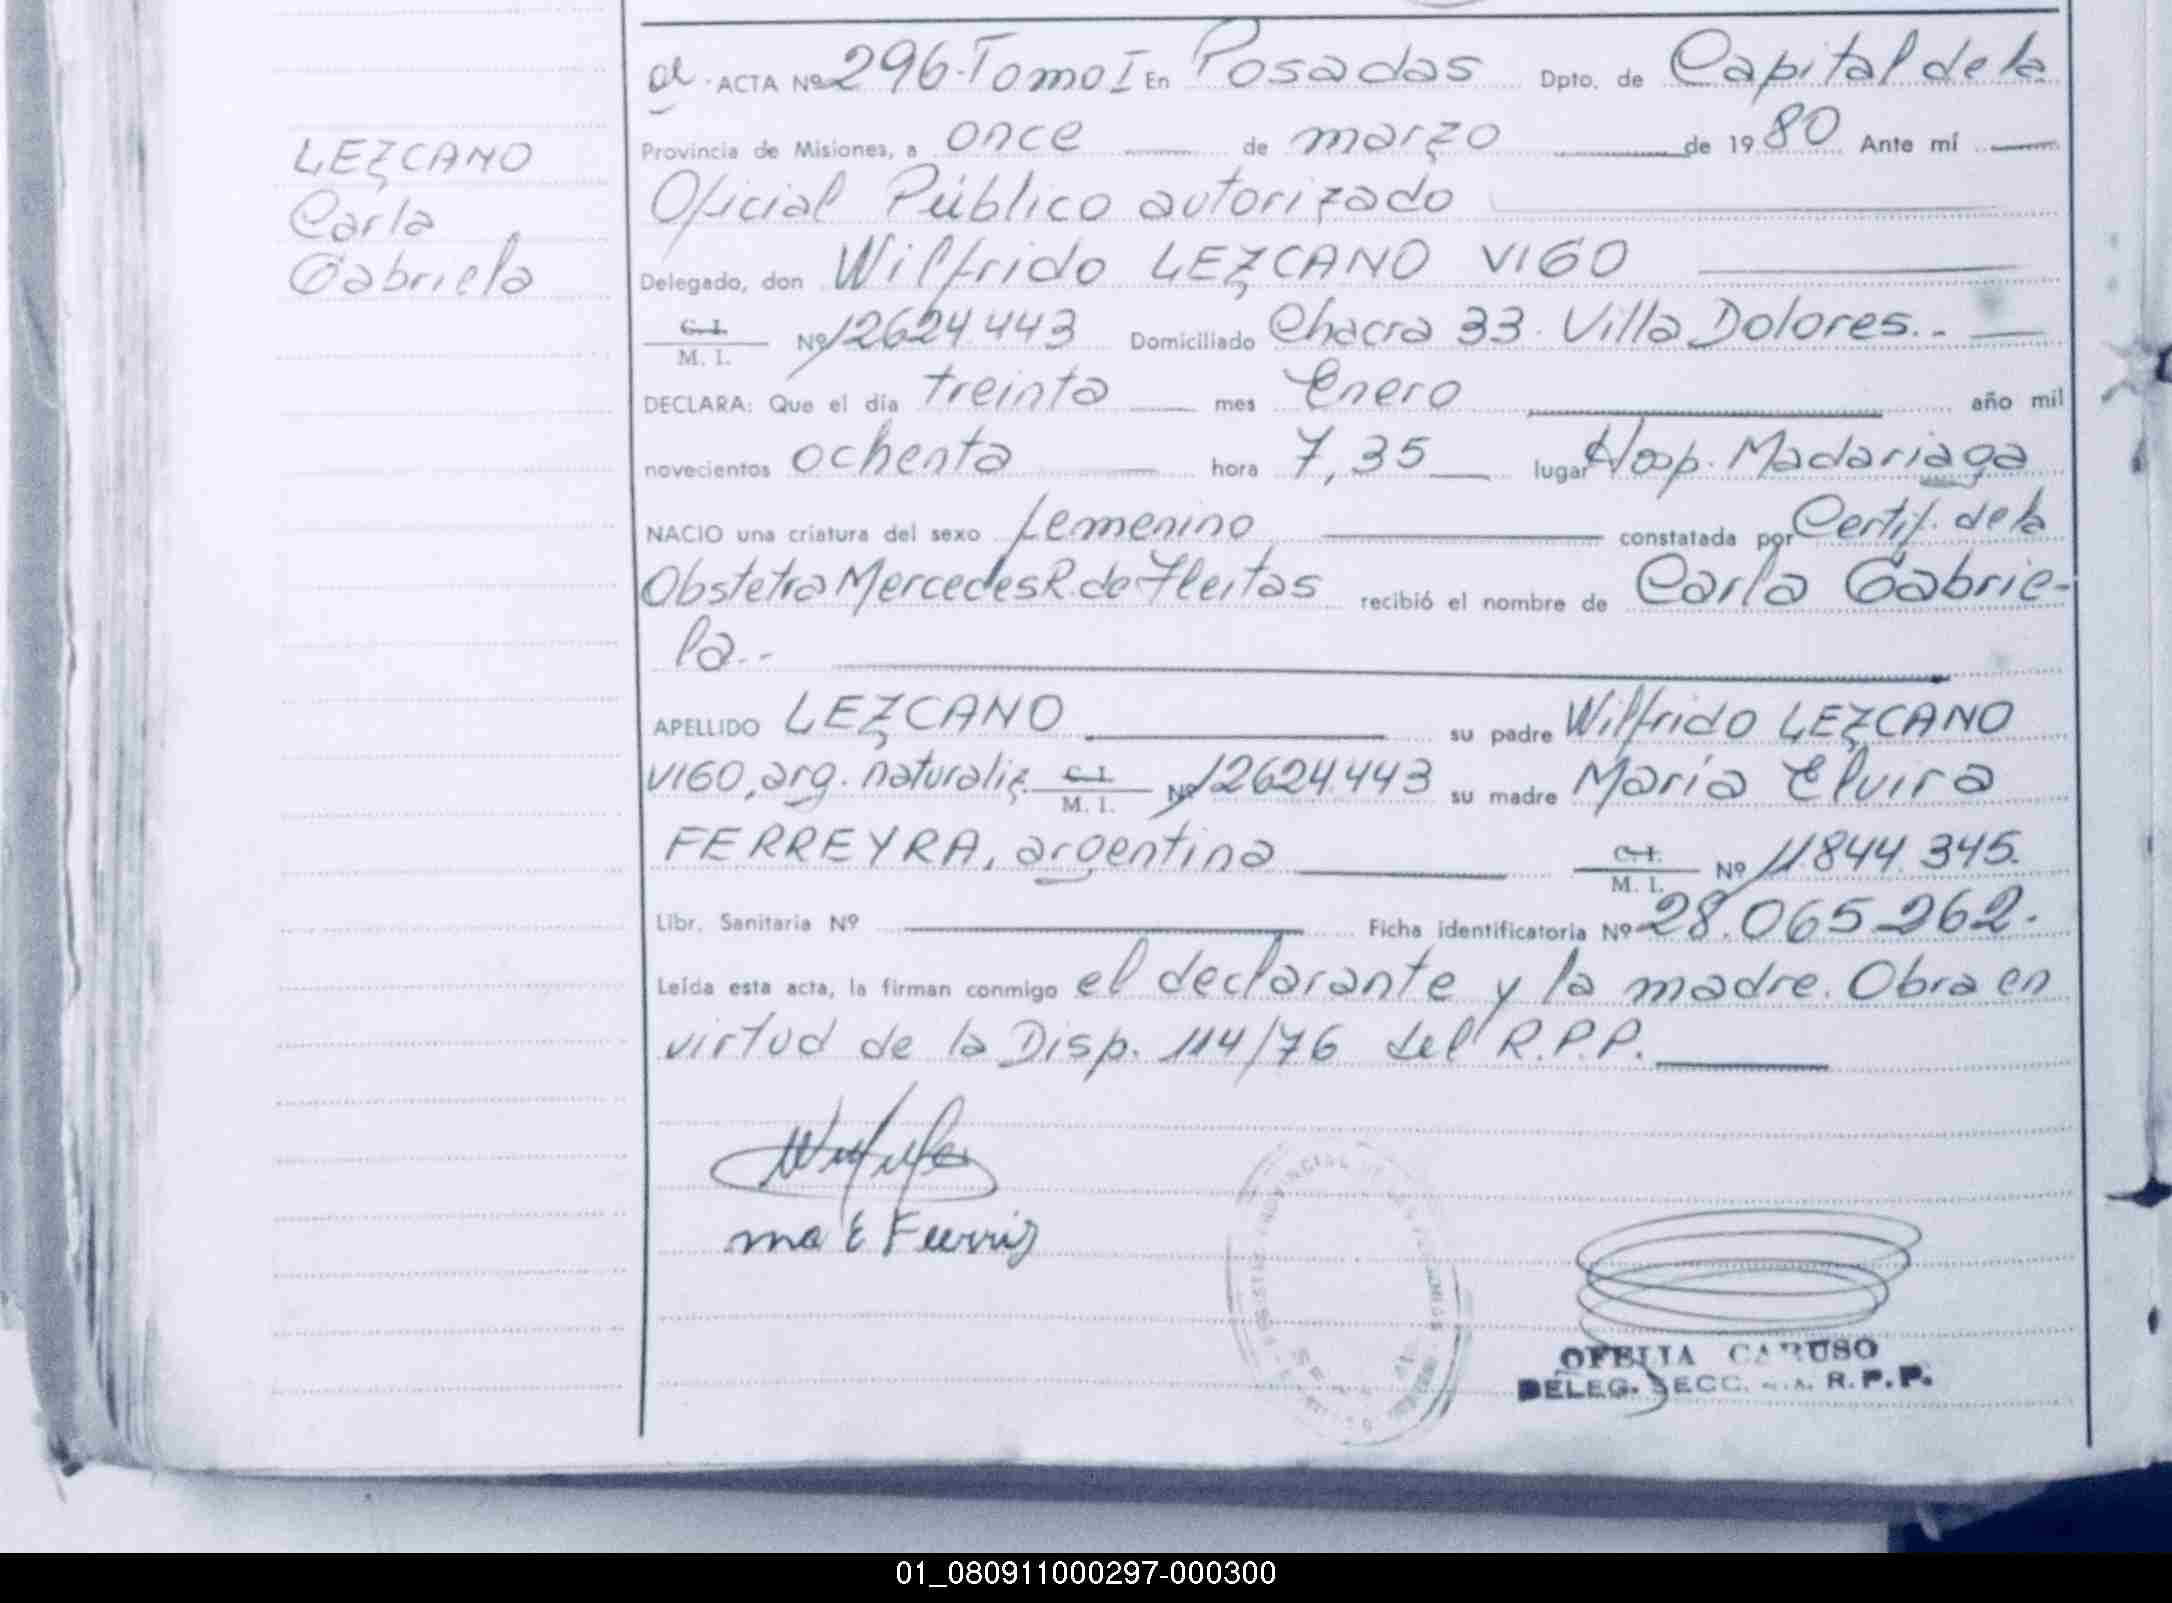 LEZCANO
Carla
Gabriela
ACTA Nº 296-Tomo I En Posadas Dpto. de Capital de la
Provincia de Misiones, a once de marzo de 1980 Ante mí
Oficial Público autorizado
Delegado, don Wilfrido LEZCANO VIGO
C. I.
M. I. Nº 12624.443 Domiciliado Chacra 33. Villa Dolores.-
DECLARA: Que el día treinta mes Enero año mil
novecientos ochenta hora 7,35 lugar Hosp. Madariaga
NACIO una criatura del sexo femenino constatada por Certif. de la
Obstetra Mercedes R. de Fleitas recibió el nombre de Carla Gabrie-
la.-
APELLIDO LEZCANO su padre Wilfrido LEZCANO
VIGO, arg. naturaliz. C. I. M. I. Nº 12624.443 su madre María Elvira
FERREYRA, argentina C. I. M. I. Nº 11844.345.
Libr. Sanitaria Nº Ficha identificatoria Nº 28.065.262.
Leída esta acta, la firman conmigo el declarante y la madre. Obra en
virtud de la Disp. 114/76 del R.P.P.
OFELIA CARUSO
DELEG. SECC. R.P.P.
01_080911000297-000300